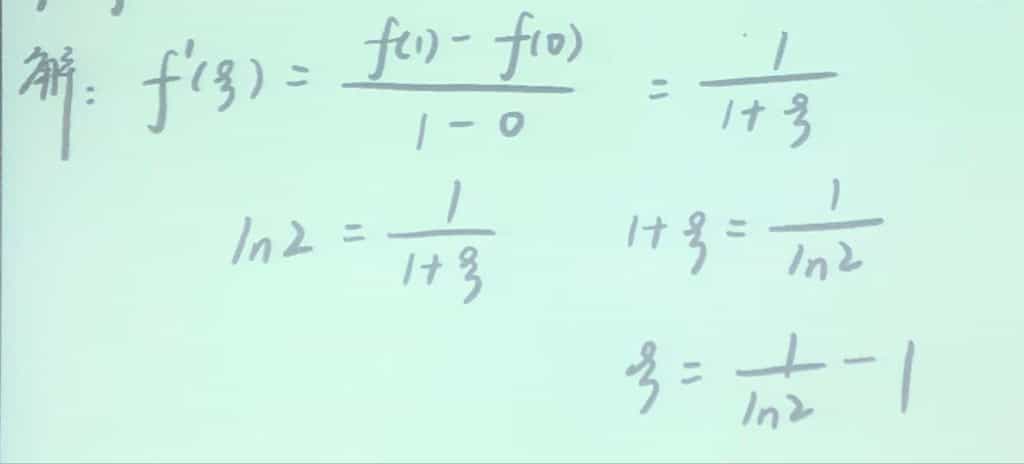 解: f'(ξ) = \frac{f(1) - f(0)}{1 - 0} = \frac{1}{1+ξ}
ln2 = \frac{1}{1+ξ} 1+ξ = \frac{1}{ln2}
ξ = \frac{1}{ln2} - 1